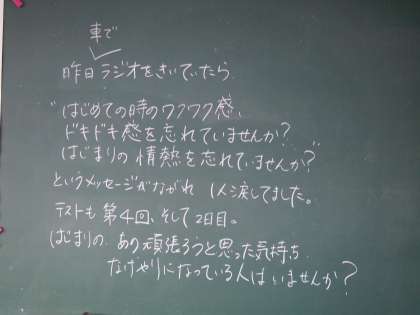 車で
昨日ラジオをきいていたら
"はじめての時のワクワク感、
ドキドキ感を忘れていませんか?
はじまりの情熱を忘れていませんか?"
というメッセージがながれ 1人涙してました。
テストも第4回、そして2日目。
はじまりの、あの頑張ろうと思った気持ち
なげやりになっている人はいませんか?